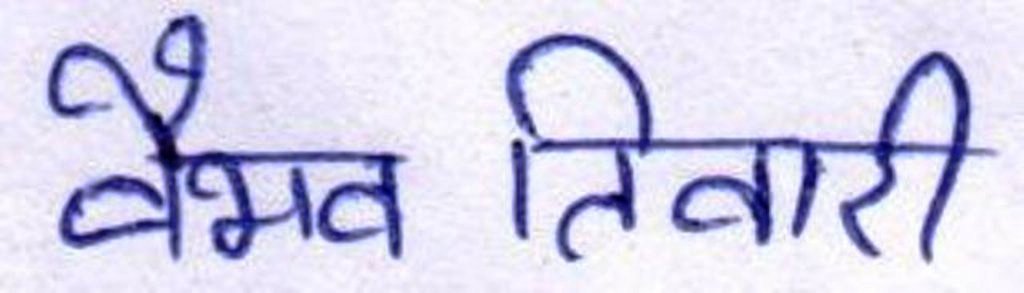 वैभव तिवारी